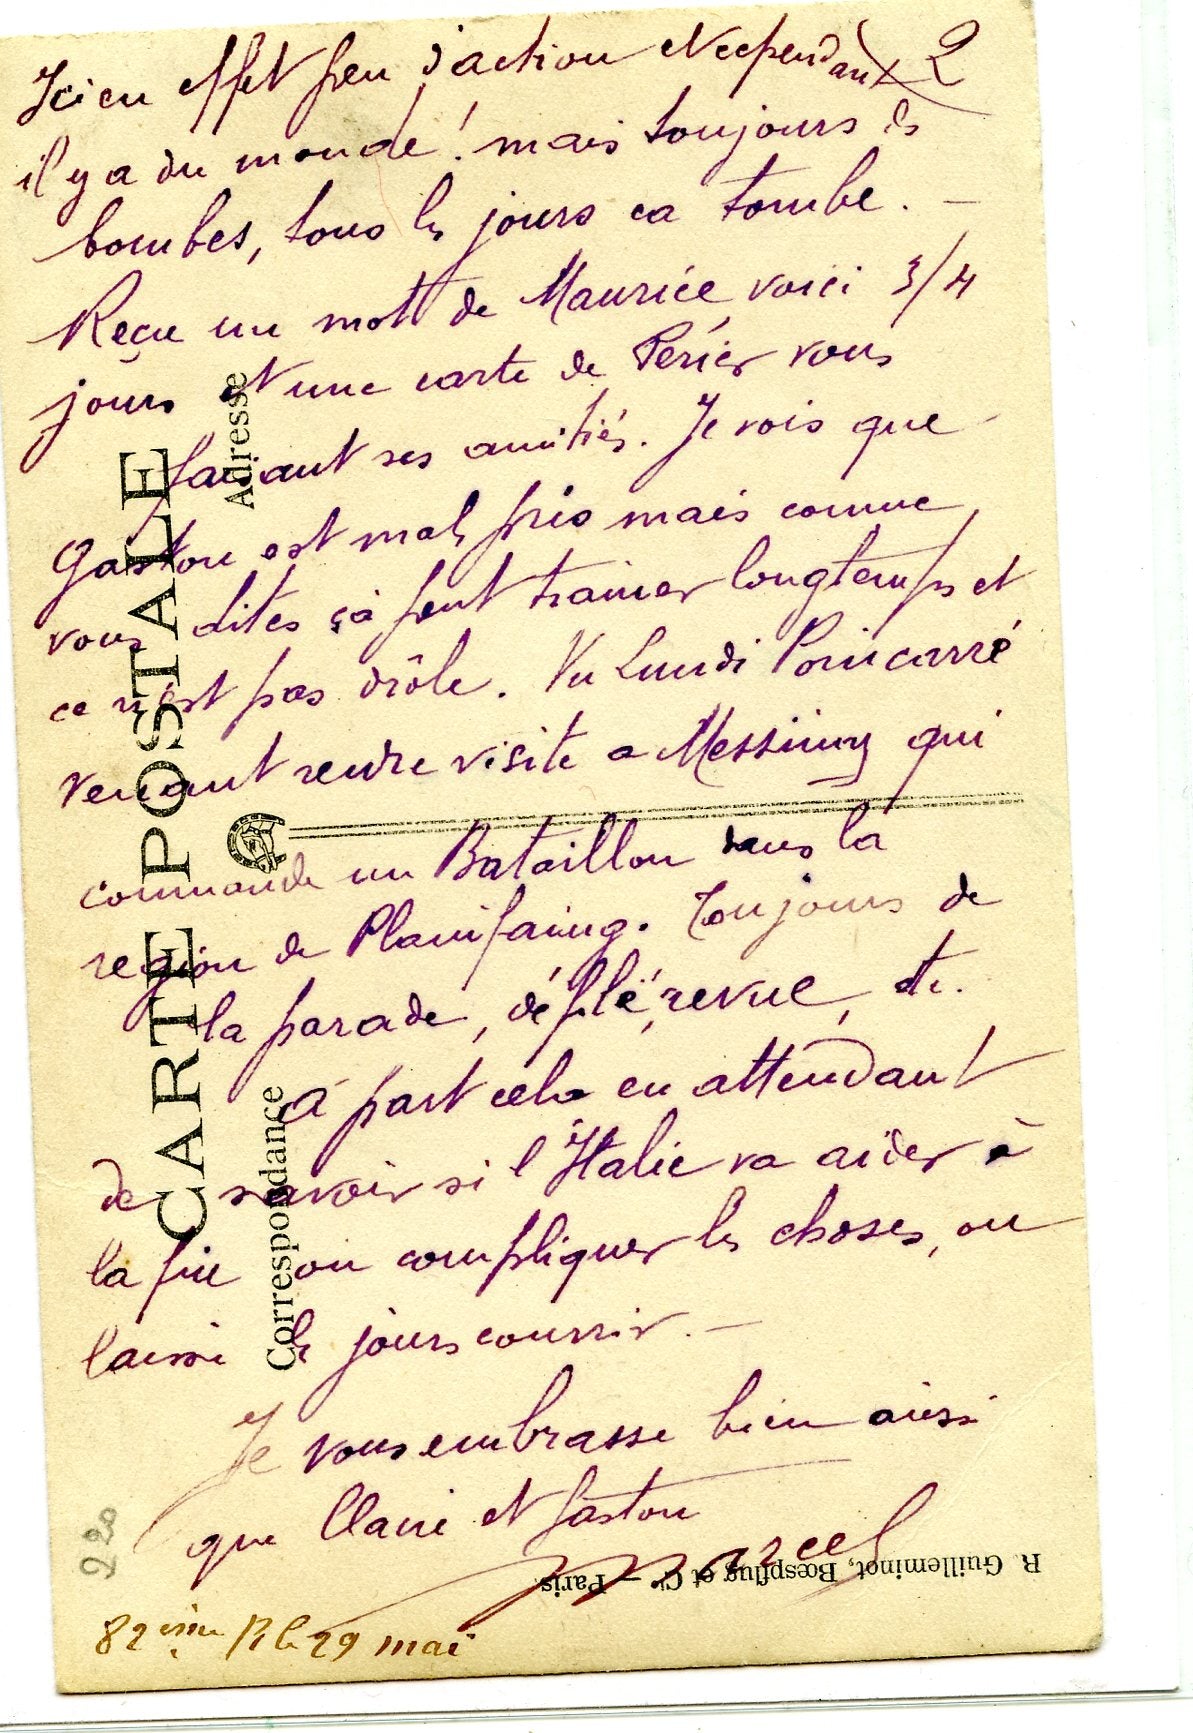 2
Ici en effet peu d'action et cependant
il y a du monde! mais toujours des
bombes, tous les jours ca tombe. —
Reçu un mot de Maurice voici 3/4
jours et une carte de Périer vous
faisant ses amitiés. Je vois que
Gaston est mal pris mais comme
vous dites çà peut trainer longtemps et
ce n'est pas drôle. Vu Lundi Poincarré
venant rendre visite a Messimy qui
commande un Bataillon dans la
region de Plainfaing. Toujours de
la parade, défilé, revue, etc.
A part cela en attendant
de savoir si l'Italie va aider à
la fin ou compliquer les choses, on
laisse les jours courrir. —
Je vous embrasse bien ainsi
que Claire et Gaston
Marcel
82ème R le 29 mai
220
CARTE POSTALE
Correspondance
Adresse
R. Guilleminot, Bœspflug et Cie – Paris.